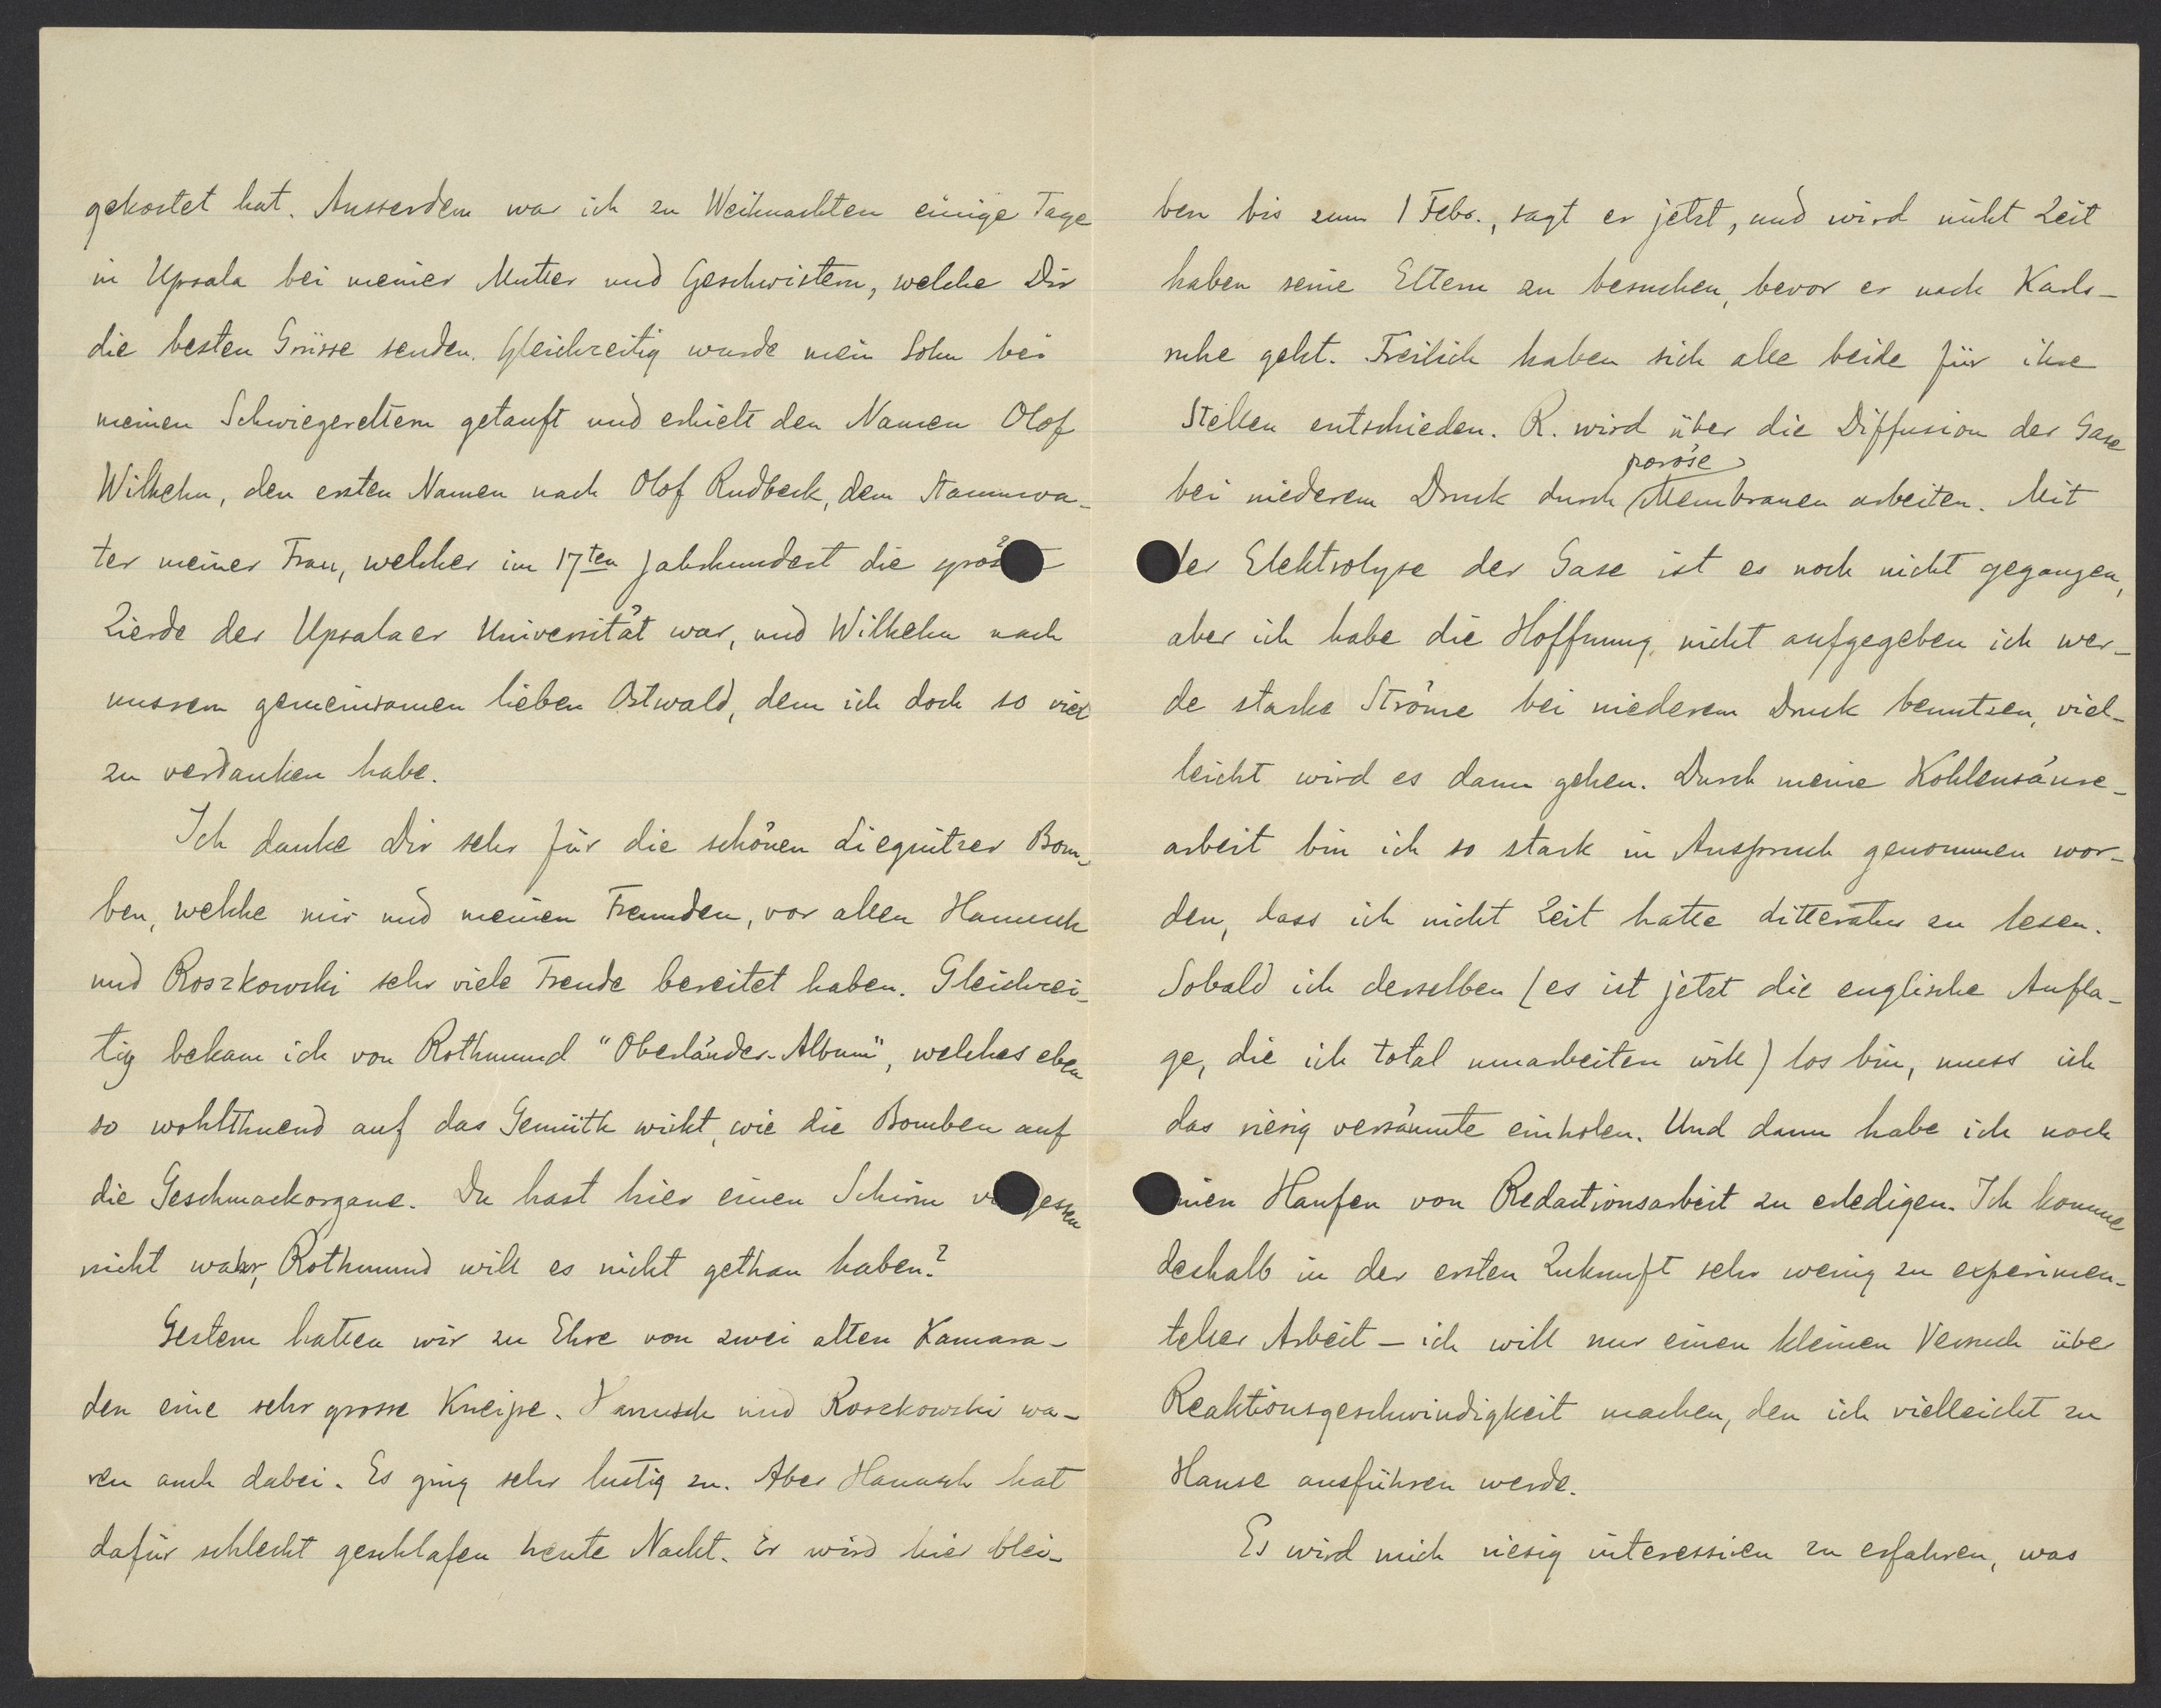 gekostet hat. Ausserdem war ich zu Weihnachten einige Tage
in Upsala bei meiner Mutter und Geschwistern, welche Dir
die besten Grüsse senden. Gleichzeitig wurde mein Sohn bei
meinen Schwiegereltern getauft und erhielt den Namen Olof
Wilhelm, den ersten Namen nach Olof Rudbeck, dem Stammva-
ter meiner Frau, welcher im 17ten Jahrhundert die grös
Zierde der Upsalaer Universität war, und Wilhelm nach
unsrem gemeinsamen lieben Ostwald, dem ich doch so viel
zu verdanken habe.
Ich danke Dir sehr für die schönen Liegnitzer Bom-
ben, welche mir und meinen Freunden, vor allen Hanusch
und Roszkowski sehr viele Freude bereitet haben. Gleichzei-
tig bekam ich von Rothmund "Oberländer-Album", welches eben
so wohlthuend auf das Gemüth wirkt, wie die Bomben auf
die Geschmackorgane. Du hast hier einen Schirm vergessen
nicht wahr, Rothmund will es nicht gethan haben?
Gestern hatten wir zu Ehre von zwei alten Kamara-
den eine sehr grosse Kneipe. Hanusch und Roszkowski wa-
ren auch dabei. Es ging sehr lustig zu. Aber Hanusch hat
dafür schlecht geschlafen heute Nacht. Er wird hier blei-
ben bis zum 1 Febr., sagt er jetzt, und wird nicht Zeit
haben seine Eltern zu besuchen, bevor er nach Karls-
ruhe geht. Freilich haben sich alle beide für ihre
Stellen entschieden. R. wird über die Diffusion der Gase
bei niederem Druck durch poröse Membranen arbeiten. Mit
der Elektrolyse der Gase ist es noch nicht gegangen,
aber ich habe die Hoffnung nicht aufgegeben ich wer-
de starke Ströme bei niederem Druck benutzen, viel-
leicht wird es dann gehen. Durch meine Kohlensäure-
arbeit bin ich so stark in Anspruch genommen wor-
den, dass ich nicht Zeit hatte Litteratur zu lesen.
Sobald ich derselben (es ist jetzt die englische Aufla-
ge, die ich total umarbeiten will) los bin, muss ich
das riesig versäumte einholen. Und dann habe ich noch
einen Haufen von Redactionsarbeit zu erledigen. Ich komme
deshalb in der ersten Zukunft sehr wenig zu experimen-
teller Arbeit - ich will nur einen kleinen Versuch über
Reaktionsgeschwindigkeit machen, den ich vielleicht zu
Hause ausführen werde.
Es wird mich riesig interessiren zu erfahren, was